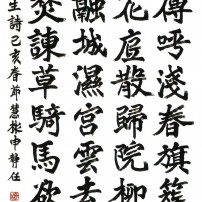 傳呼淺春旗簇
花底散歸院柳
融城濕宮雲去
焚諫草騎馬欲
生詩己亥春節慧申靜任